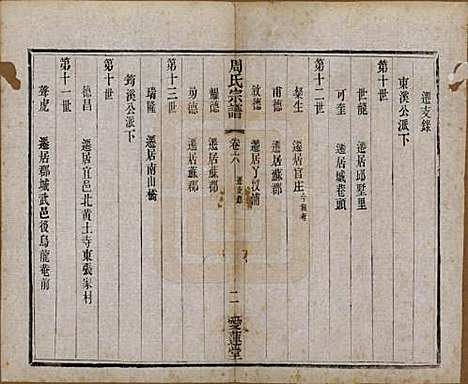 遷支錄
東溪公派下
第十世
世龍 遷居邱墅里
可奎 遷居城巷頭
第十二世
榮生 遷居官庄
甫德 遷居蘇郡
敦德 遷居丫汊浦
周氏宗譜 卷六 遷支錄 二 愛蓮堂
耀德 遷居蘇郡
功德 遷居蘇郡
第十三世
瑞隆 遷居南山橋
筠溪公派下
德昌 遷居宜邑北黃土寺東張家村
第十一世
奪虎 遷居郡城武邑後烏龍菴前